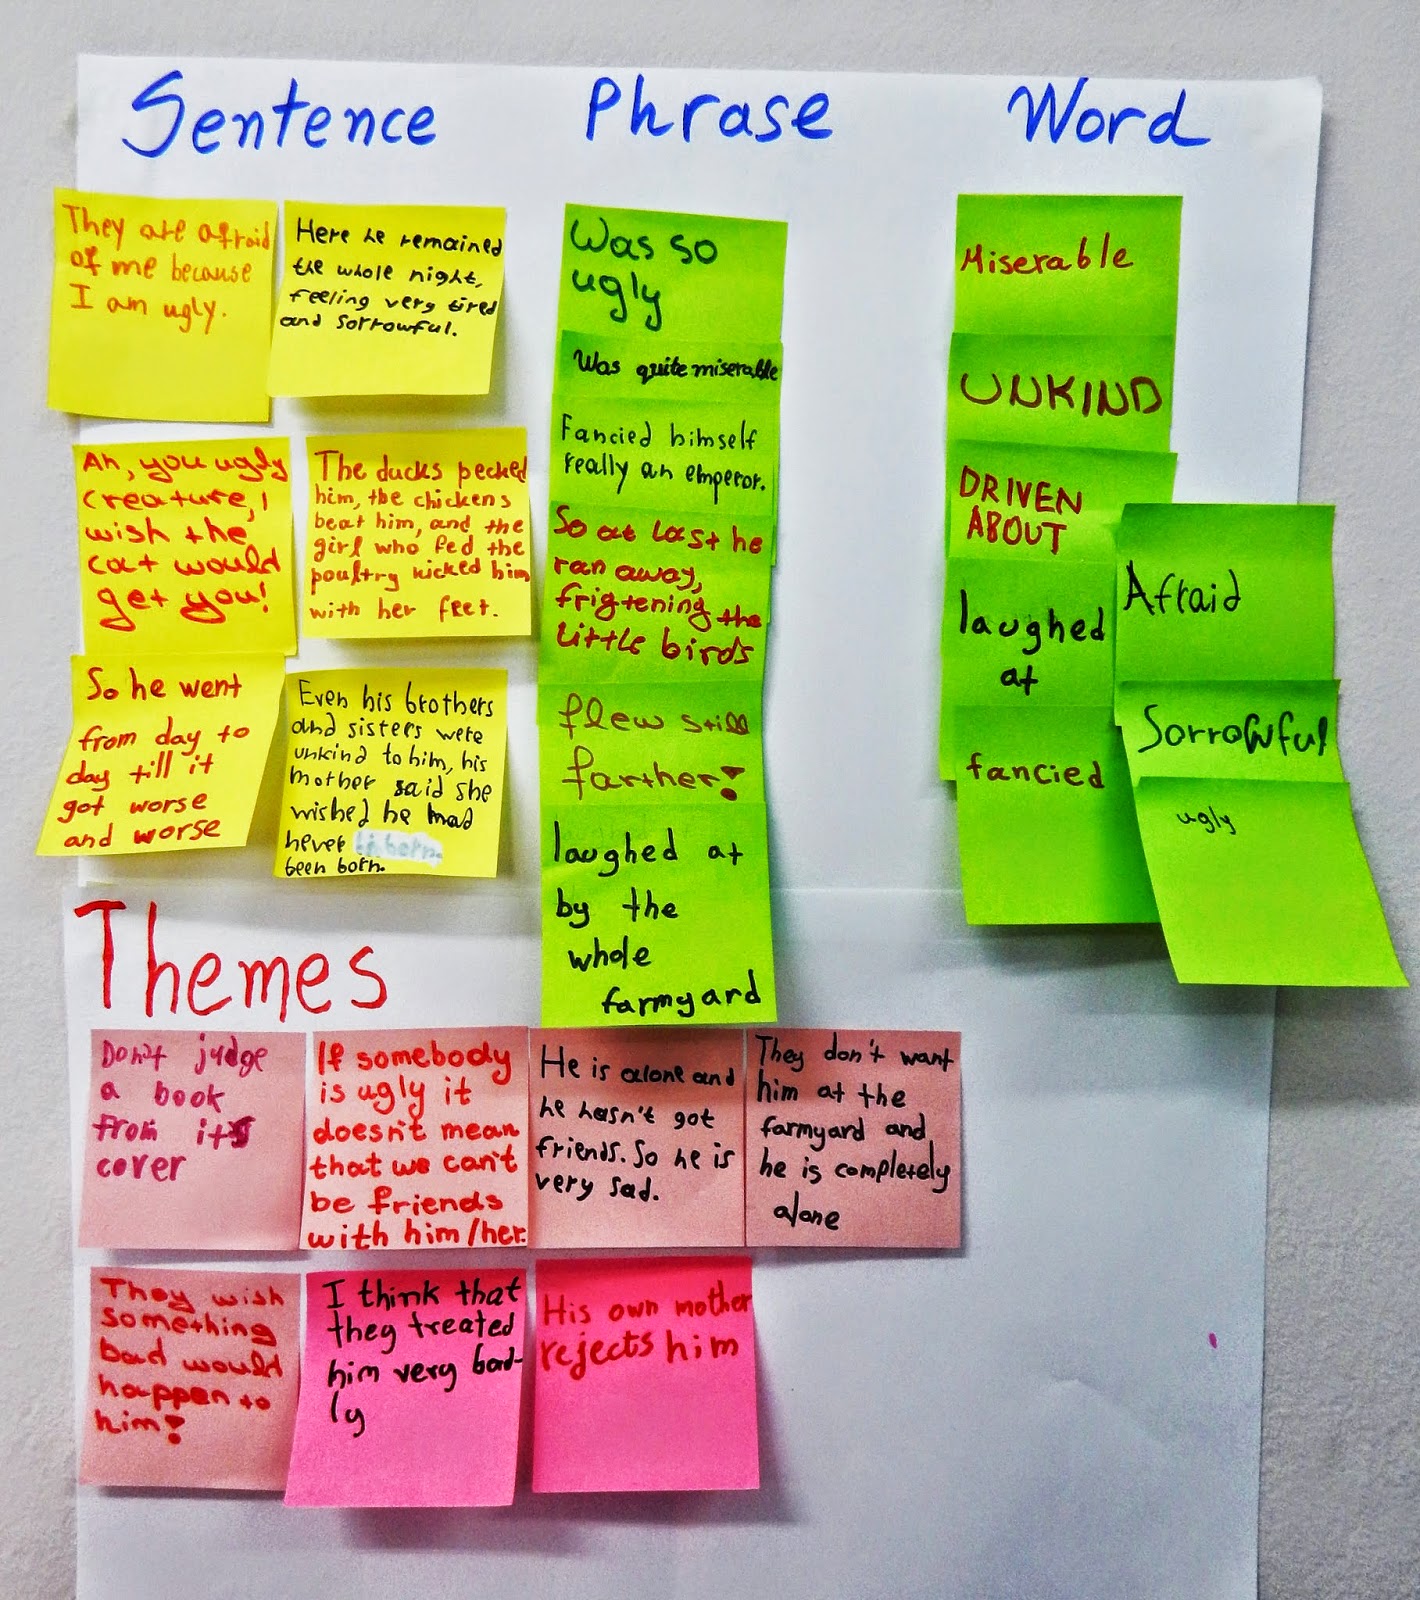 Sentence
Phrase
Word
They are afraid
of me because
I am ugly.
Here he remained
the whole night,
feeling very tired
and sorrowful.
Ah, you ugly
creature, I
wish the
cat would
get you!
The ducks pecked
him, the chickens
beat him, and the
girl who fed the
poultry kicked him
with her feet.
So he went
from day to
day till it
got worse
and worse
Even his brothers
and sisters were
unkind to him, his
mother said she
wished he had
never
been born.
Was so
ugly
Was quite miserable
Fancied himself
really an emperor.
So at last he
ran away,
frigtening the
little birds
flew still
farther!
laughed at
by the
whole
farmyard
Miserable
UNKIND
DRIVEN
ABOUT
laughed
at
fancied
Afraid
Sorrowful
ugly
Themes
Don't judge
a book
from its
cover
If somebody
is ugly it
doesn't mean
that we can't
be friends
with him/her.
He is alone and
he hasn't got
friends. So he is
very sad.
They don't want
him at the
farmyard and
he is completely
alone
They wish
something
bad would
happen to
him!
I think that
they treated
him very bad-
ly
His own mother
rejects him